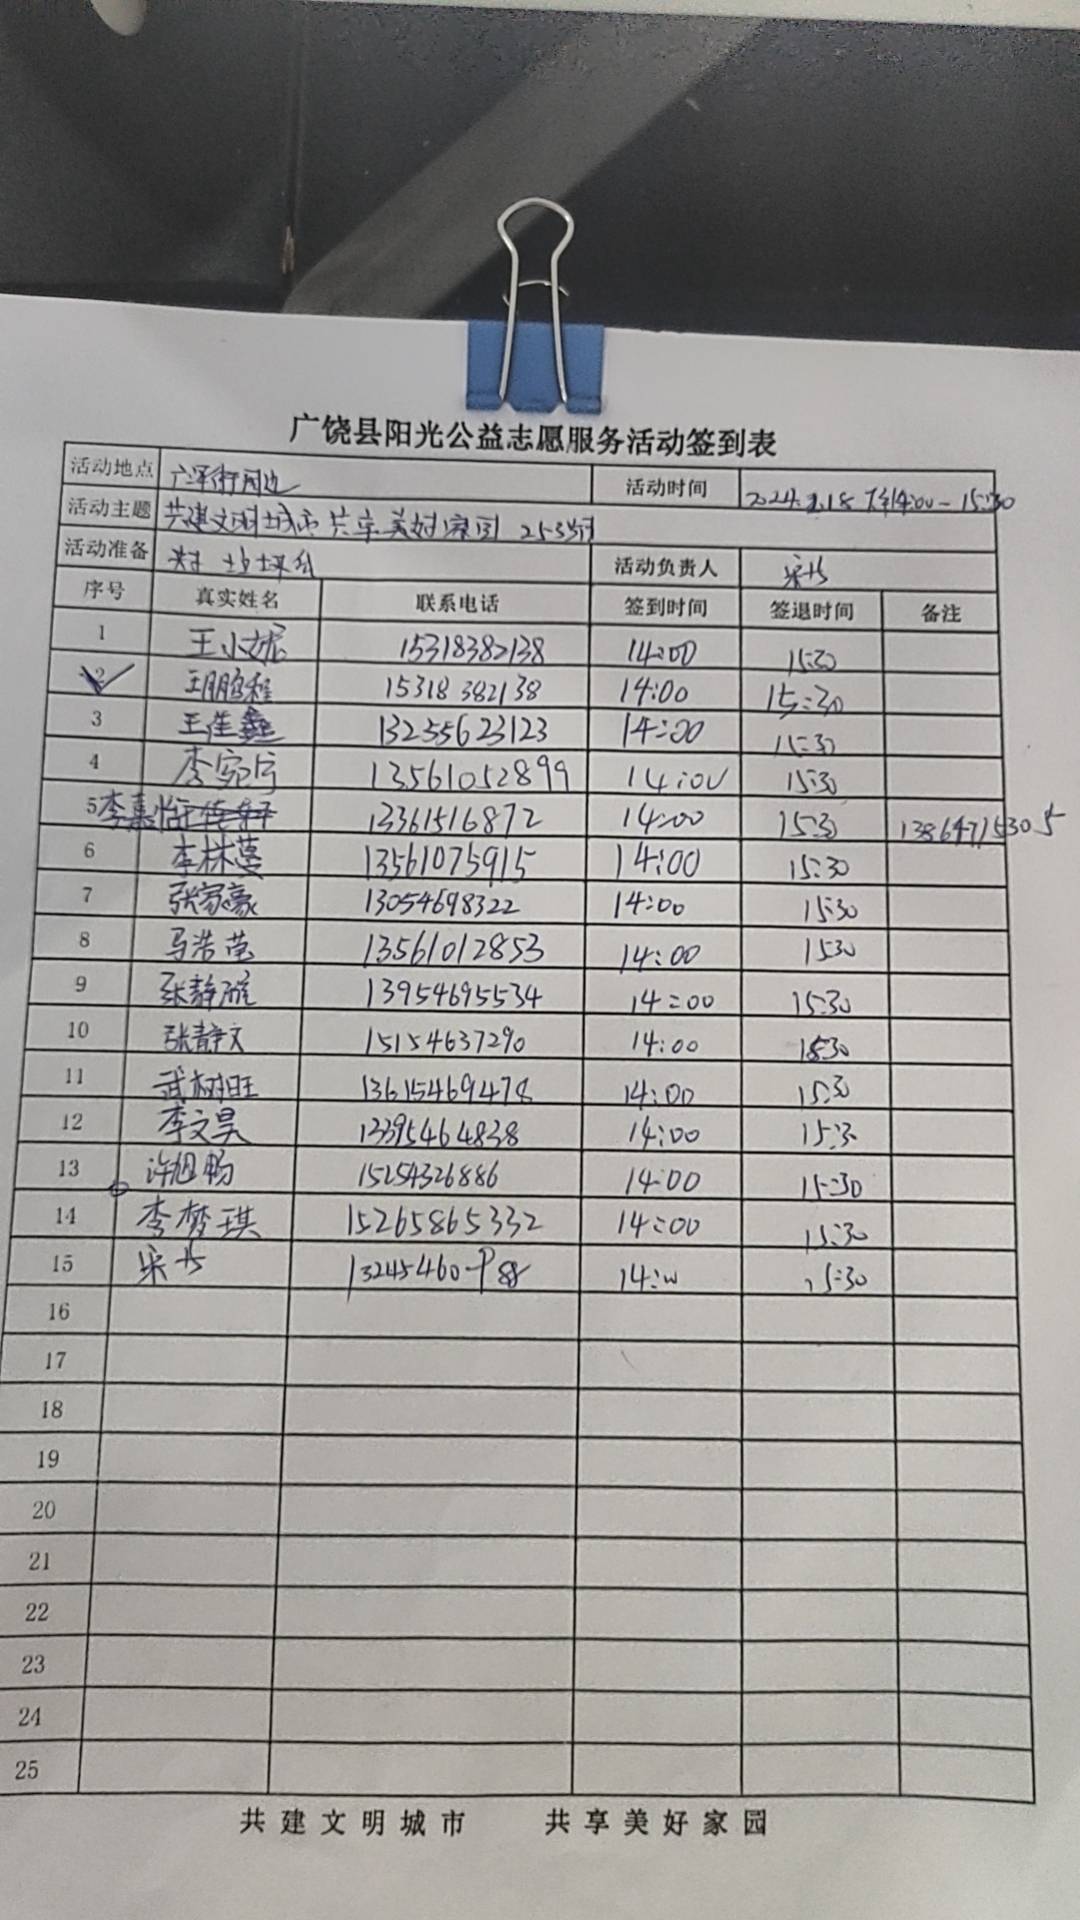 广饶县阳光公益志愿服务活动签到表
活动地点 周边 活动时间 2024. 14:00-15:30
活动主题 共建文明城市 共享美好家园 253
活动准备 活动负责人
序号 真实姓名 联系电话 签到时间 签退时间 备注
1 王小妮 15318382138 14:00 15:30
2 王鹏程 15318382138 14:00 15:30
3 王佳鑫 13255623123 14:00 15:30
4 李宛宁 13561052899 14:00 15:30
5 李嘉怡 13361516872 14:00 15:30 13864715305
6 李林蔓 13561075915 14:00 15:30
7 张家豪 13054698322 14:00 15:30
8 马浩莹 13561012853 14:00 15:30
9 张静雅 13954695534 14:00 15:30
10 张静文 15154637290 14:00 15:30
11 武树旺 13615469478 14:00 15:30
12 李文昊 13395464838 14:00 15:30
13 许旭畅 15254326886 14:00 15:30
14 李梦琪 15265865332 14:00 15:30
15 14:00 15:30
16
17
18
19
20
21
22
23
24
25
共建文明城市 共享美好家园